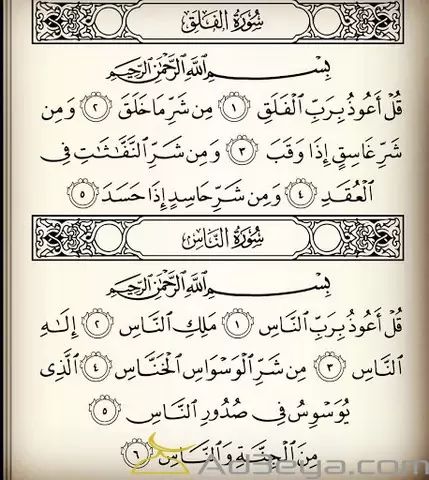 سُورَةُ الفَلَقِ
بِسْمِ اللَّهِ الرَّحْمَٰنِ الرَّحِيمِ
قُلْ أَعُوذُ بِرَبِّ ٱلْفَلَقِ ١ مِن شَرِّ مَا خَلَقَ ٢ وَمِن
شَرِّ غَاسِقٍ إِذَا وَقَبَ ٣ وَمِن شَرِّ ٱلنَّفَّٰثَٰتِ فِى
ٱلْعُقَدِ ٤ وَمِن شَرِّ حَاسِدٍ إِذَا حَسَدَ ٥
سُورَةُ النَّاسِ
بِسْمِ اللَّهِ الرَّحْمَٰنِ الرَّحِيمِ
قُلْ أَعُوذُ بِرَبِّ ٱلنَّاسِ ١ مَلِكِ ٱلنَّاسِ ٢ إِلَٰهِ
ٱلنَّاسِ ٣ مِن شَرِّ ٱلْوَسْوَاسِ ٱلْخَنَّاسِ ٤ ٱلَّذِى
يُوَسْوِسُ فِى صُدُورِ ٱلنَّاسِ ٥
مِنَ ٱلْجِنَّةِ وَٱلنَّاسِ ٦
Ad3eya.com